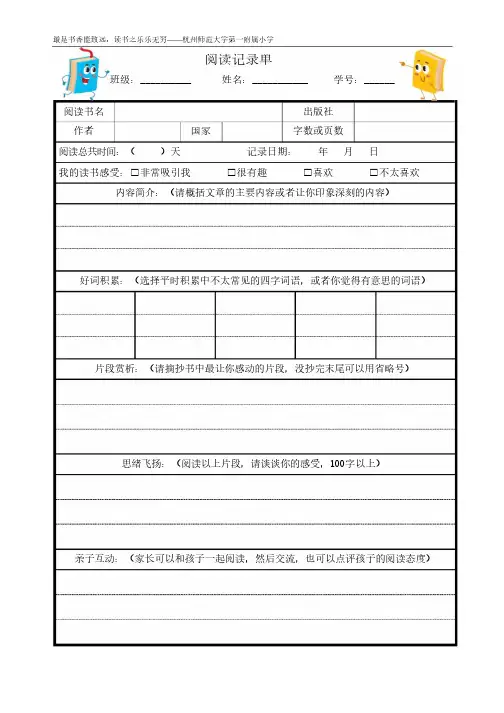 最是书香能致远，读书之乐乐无穷——杭州师范大学第一附属小学
阅读记录单
班级：__________ 姓名：___________ 学号：______
阅读书名 出版社
作者 国家 字数或页数
阅读总共时间：（ ）天 记录日期： 年 月 日
我的读书感受：□非常吸引我 □很有趣 □喜欢 □不太喜欢
内容简介：（请概括文章的主要内容或者让你印象深刻的内容）
好词积累：（选择平时积累中不太常见的四字词语，或者你觉得有意思的词语）
片段赏析：（请摘抄书中最让你感动的片段，没抄完末尾可以用省略号）
思绪飞扬：（阅读以上片段，请谈谈你的感受，100字以上）
亲子互动：（家长可以和孩子一起阅读，然后交流，也可以点评孩子的阅读态度）